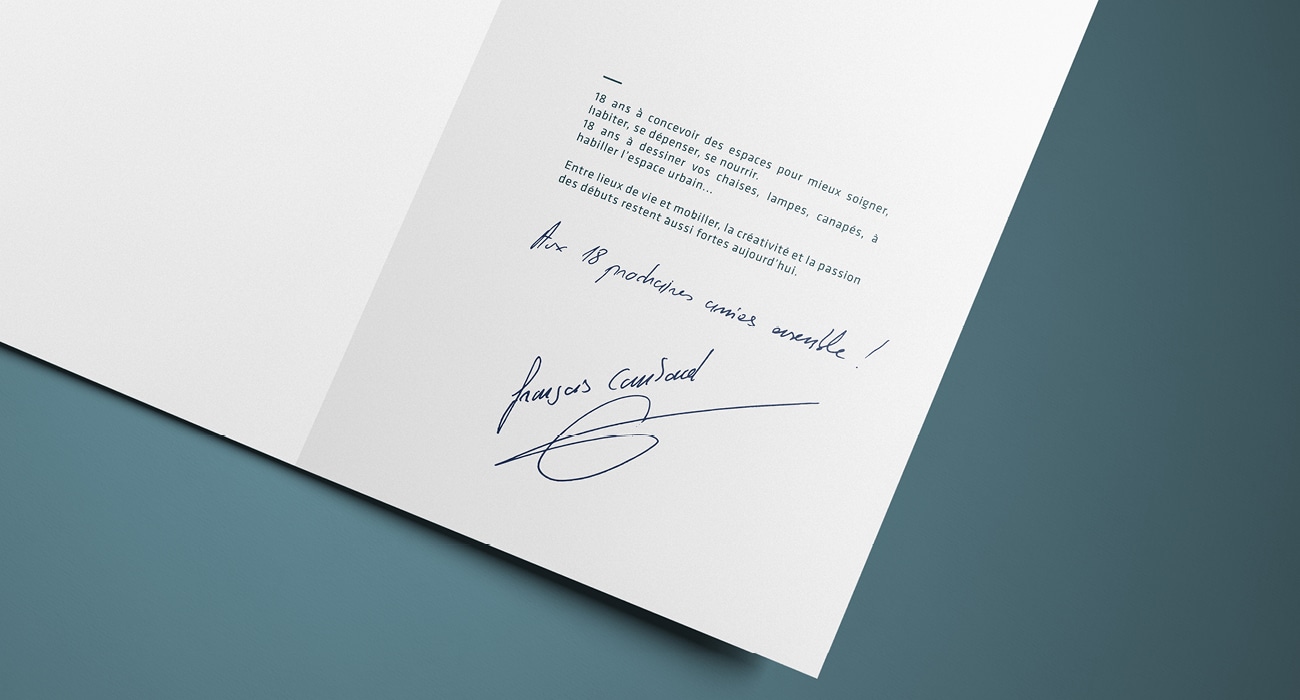 18 ans à concevoir des espaces pour mieux soigner,
habiter, se dépenser, se nourrir.
18 ans à dessiner vos chaises, lampes, canapés, à
habiller l'espace urbain...
Entre lieux de vie et mobilier, la créativité et la passion
des débuts restent aussi fortes aujourd'hui.
Aux 18 prochaines années ensemble !
françois